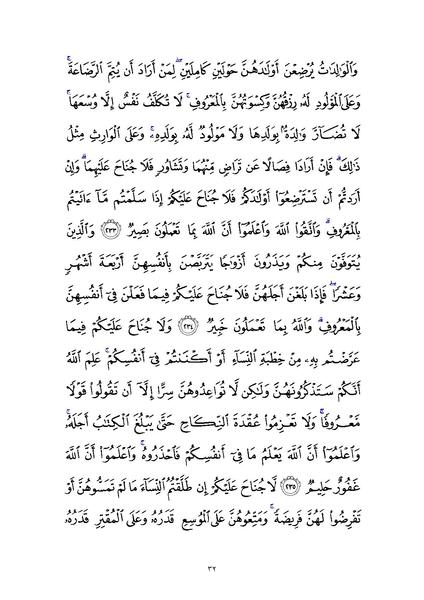 وَٱلْوَٰلِدَٰتُ يُرْضِعْنَ أَوْلَٰدَهُنَّ حَوْلَيْنِ كَامِلَيْنِ ۖ لِمَنْ أَرَادَ أَن يُتِمَّ ٱلرَّضَاعَةَ ۚ
وَعَلَى ٱلْمَوْلُودِ لَهُۥ رِزْقُهُنَّ وَكِسْوَتُهُنَّ بِٱلْمَعْرُوفِ ۚ لَا تُكَلَّفُ نَفْسٌ إِلَّا وُسْعَهَا ۚ
لَا تُضَآرَّ وَٰلِدَةٌۢ بِوَلَدِهَا وَلَا مَوْلُودٌ لَّهُۥ بِوَلَدِهِۦ ۚ وَعَلَى ٱلْوَارِثِ مِثْلُ
ذَٰلِكَ ۗ فَإِنْ أَرَادَا فِصَالًا عَن تَرَاضٍ مِّنْهُمَا وَتَشَاوُرٍ فَلَا جُنَاحَ عَلَيْهِمَا ۗ وَإِنْ
أَرَدتُّمْ أَن تَسْتَرْضِعُوٓا۟ أَوْلَٰدَكُمْ فَلَا جُنَاحَ عَلَيْكُمْ إِذَا سَلَّمْتُم مَّآ ءَاتَيْتُم
بِٱلْمَعْرُوفِ ۗ وَٱتَّقُوا۟ ٱللَّهَ وَٱعْلَمُوٓا۟ أَنَّ ٱللَّهَ بِمَا تَعْمَلُونَ بَصِيرٌ ٢٣٣ وَٱلَّذِينَ
يُتَوَفَّوْنَ مِنكُمْ وَيَذَرُونَ أَزْوَٰجًا يَتَرَبَّصْنَ بِأَنفُسِهِنَّ أَرْبَعَةَ أَشْهُرٍ
وَعَشْرًا ۖ فَإِذَا بَلَغْنَ أَجَلَهُنَّ فَلَا جُنَاحَ عَلَيْكُمْ فِيمَا فَعَلْنَ فِىٓ أَنفُسِهِنَّ
بِٱلْمَعْرُوفِ ۗ وَٱللَّهُ بِمَا تَعْمَلُونَ خَبِيرٌ ٢٣٤ وَلَا جُنَاحَ عَلَيْكُمْ فِيمَا
عَرَّضْتُم بِهِۦ مِنْ خِطْبَةِ ٱلنِّسَآءِ أَوْ أَكْنَنتُمْ فِىٓ أَنفُسِكُمْ ۚ عَلِمَ ٱللَّهُ
أَنَّكُمْ سَتَذْكُرُونَهُنَّ وَلَٰكِن لَّا تُوَاعِدُوهُنَّ سِرًّا إِلَّآ أَن تَقُولُوا۟ قَوْلًا
مَّعْرُوفًا ۚ وَلَا تَعْزِمُوا۟ عُقْدَةَ ٱلنِّكَاحِ حَتَّىٰ يَبْلُغَ ٱلْكِتَٰبُ أَجَلَهُۥ ۚ
وَٱعْلَمُوٓا۟ أَنَّ ٱللَّهَ يَعْلَمُ مَا فِىٓ أَنفُسِكُمْ فَٱحْذَرُوهُ ۚ وَٱعْلَمُوٓا۟ أَنَّ ٱللَّهَ
غَفُورٌ حَلِيمٌ ٢٣٥ لَّا جُنَاحَ عَلَيْكُمْ إِن طَلَّقْتُمُ ٱلنِّسَآءَ مَا لَمْ تَمَسُّوهُنَّ أَوْ
تَفْرِضُوا۟ لَهُنَّ فَرِيضَةً ۚ وَمَتِّعُوهُنَّ عَلَى ٱلْمُوسِعِ قَدَرُهُۥ وَعَلَى ٱلْمُقْتِرِ قَدَرُهُۥ
٣٢